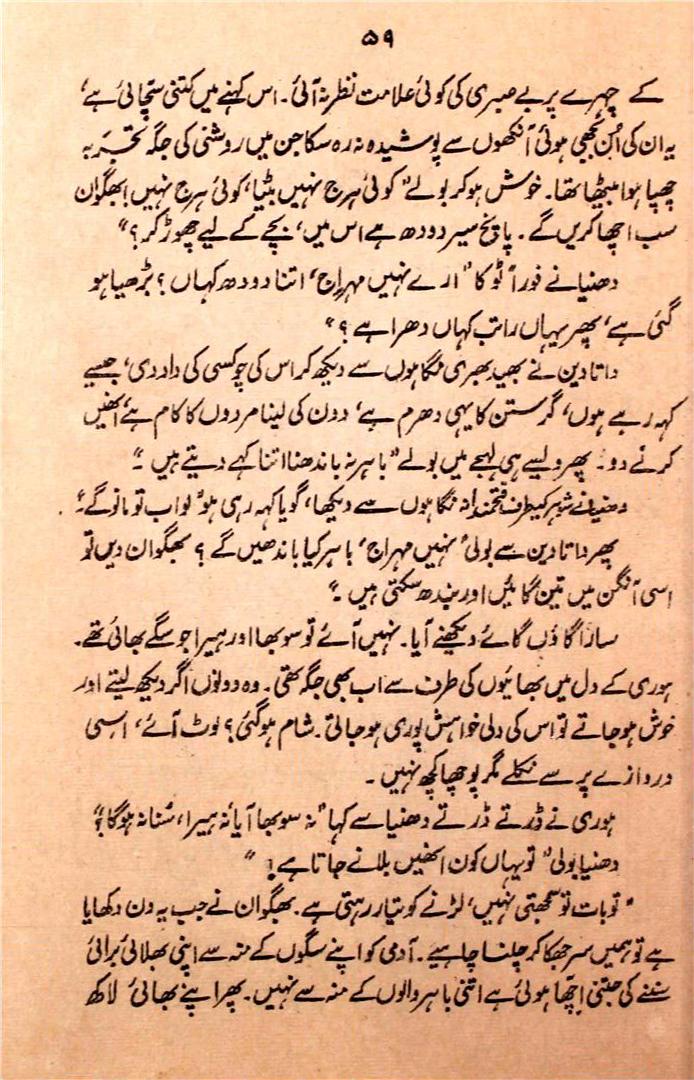 ۵۹
کے چہرے پر بے صبری کی کوئی علامت نظر نہ آئی۔ اس کہنے میں کتنی سچائی ہے،
یہ ان کی اُن بُجھی ہوئی آنکھوں سے پوشیدہ نہ رہ سکا جن میں روشنی کی جگہ تجربہ
چھپا ہوا بیٹھا تھا۔ خوش ہو کر بولے "کوئی ہرج نہیں بیٹا، کوئی ہرج نہیں! بھگوان
سب اچھا کریں گے۔ پانچ سیر دودھ ہے اس میں، بچے کے لیے چھوڑ کر؟"
دھنیا نے فوراً ٹوکا "ارے نہیں مہراج، اتنا دودھ کہاں؟ بڑھیا ہو
گئی ہے، پھر یہاں راتب کہاں دھرا ہے؟"
داتادین نے بھید بھری نگاہوں سے دیکھ کر اس کی چوکسی کی داد دی، جیسے
کہہ رہے ہوں، گرستن کا یہی دھرم ہے، دون کی لینا مردوں کا کام ہے، اُنھیں
کرنے دو۔ پھر ویسے ہی لہجے میں بولے "باہر نہ باندھنا اتنا کہے دیتے ہیں۔"
دھنیا نے شوہر کیطرف فتحمندانہ نگاہوں سے دیکھا، گویا کہہ رہی ہو "لو اب تو مانو گے۔"
پھر داتادین سے بولی "نہیں مہراج، باہر کیا باندھیں گے؟ بھگوان دیں تو
اسی آنگن میں تین گائیں اور بندھ سکتی ہیں۔"
سارا گاؤں گائے دیکھنے آیا۔ نہیں آئے تو سوبھا اور ہیرا جو سگے بھائی تھے۔
ہوری کے دل میں بھائیوں کی طرف سے اب بھی جگہ تھی۔ وہ دونوں اگر دیکھ لیتے اور
خوش ہو جاتے تو اس کی دلی خواہش پوری ہو جاتی۔ شام ہو گئی؟ لوٹ آئے، اسی
دروازے پر سے نکلے مگر پوچھا کچھ نہیں۔
ہوری نے ڈرتے ڈرتے دھنیا سے کہا "نہ سوبھا آیا نہ ہیرا، سُنا نہ ہوگا؟"
دھنیا بولی "تو یہاں کون انھیں بلانے جاتا ہے!"
"تو بات تو سمجھتی نہیں، لڑنے کو تیار رہتی ہے۔ بھگوان نے جب یہ دن دکھایا
ہے تو ہمیں سر جھکا کر چلنا چاہیے۔ آدمی کو اپنے سگوں کے منہ سے اپنی بھلائی برائی
سننے کی جتنی اِچّھا ہوتی ہے اتنی باہر والوں کے منہ سے نہیں۔ پھر اپنے بھائی لاکھ